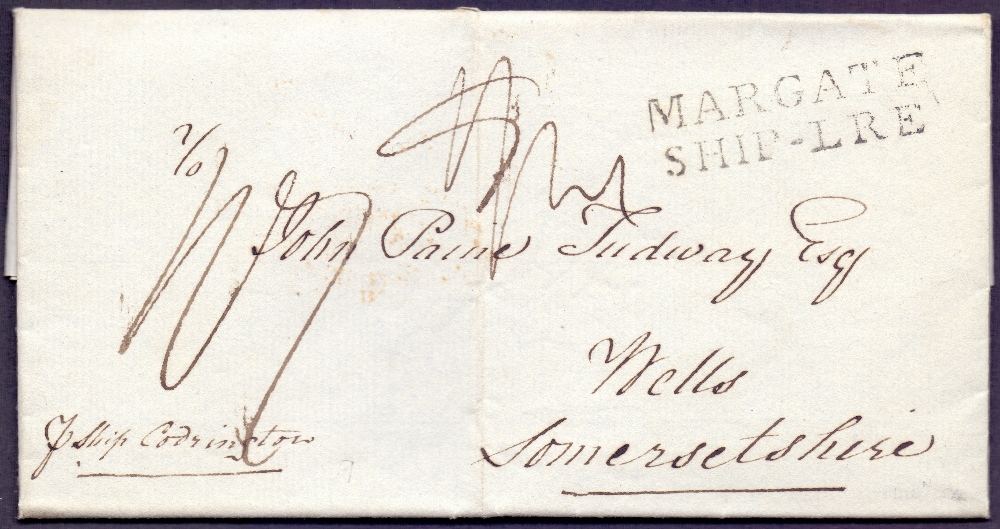 MARGATE
SHIP-LRE
1/0
John Paine Tudway Esq
Wells
Somersetshire
p Ship Codrington